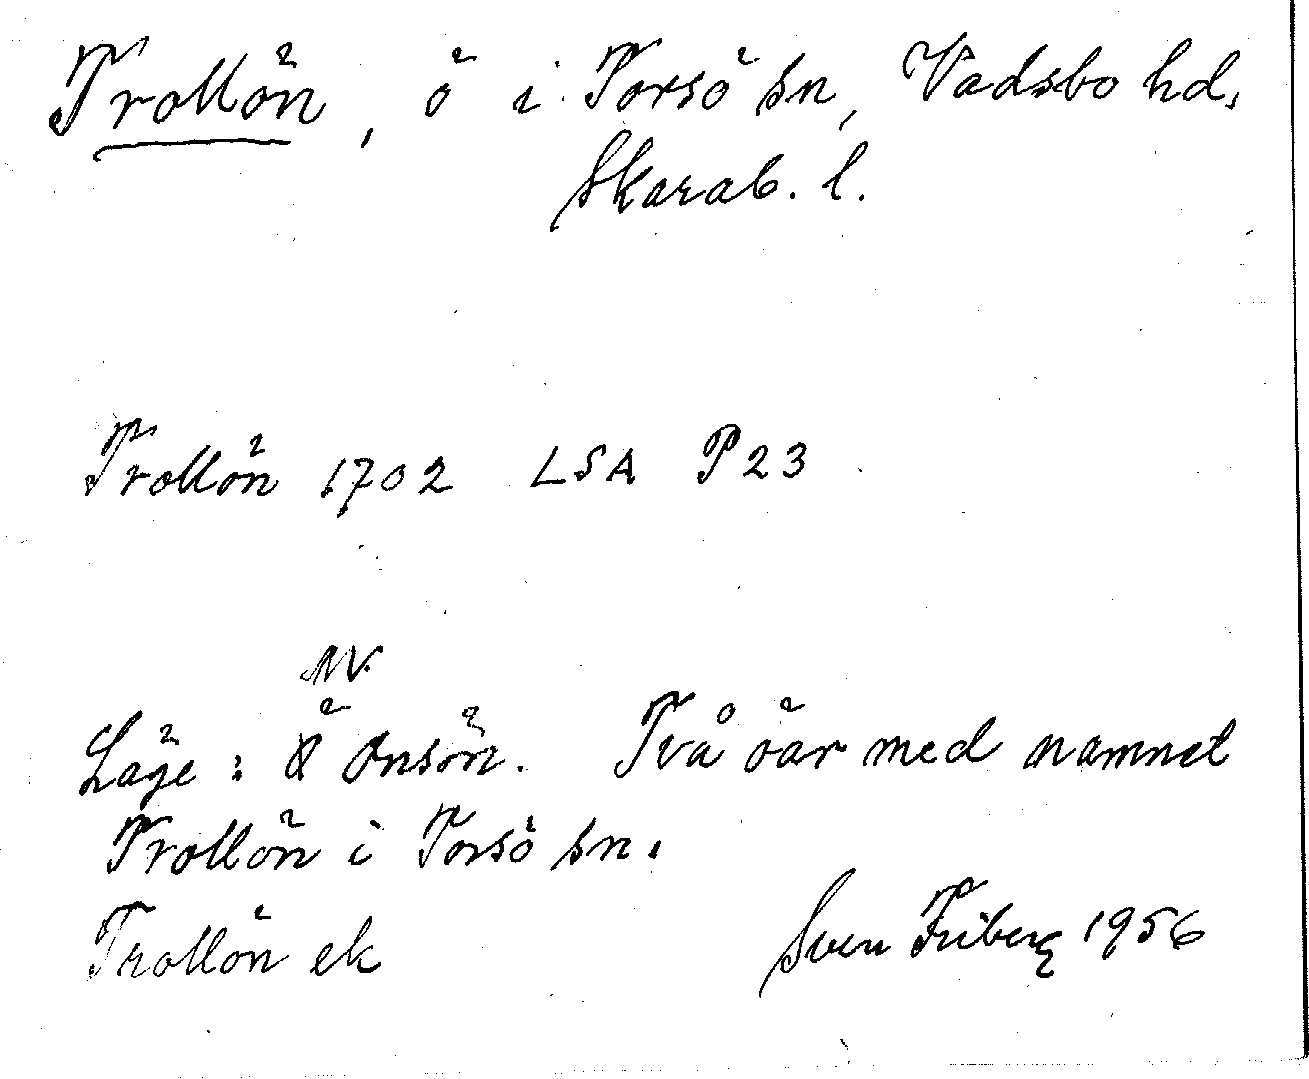 Trollön, ö i Torsö sn, Vadsbo hd,
Skarab. l.
Trollön 1702 LSA P23
NV
Läge: Ö Onsön. Två öar med namnet
Trollön i Torsö sn.
Trollön ek
Sven Friberg 1956